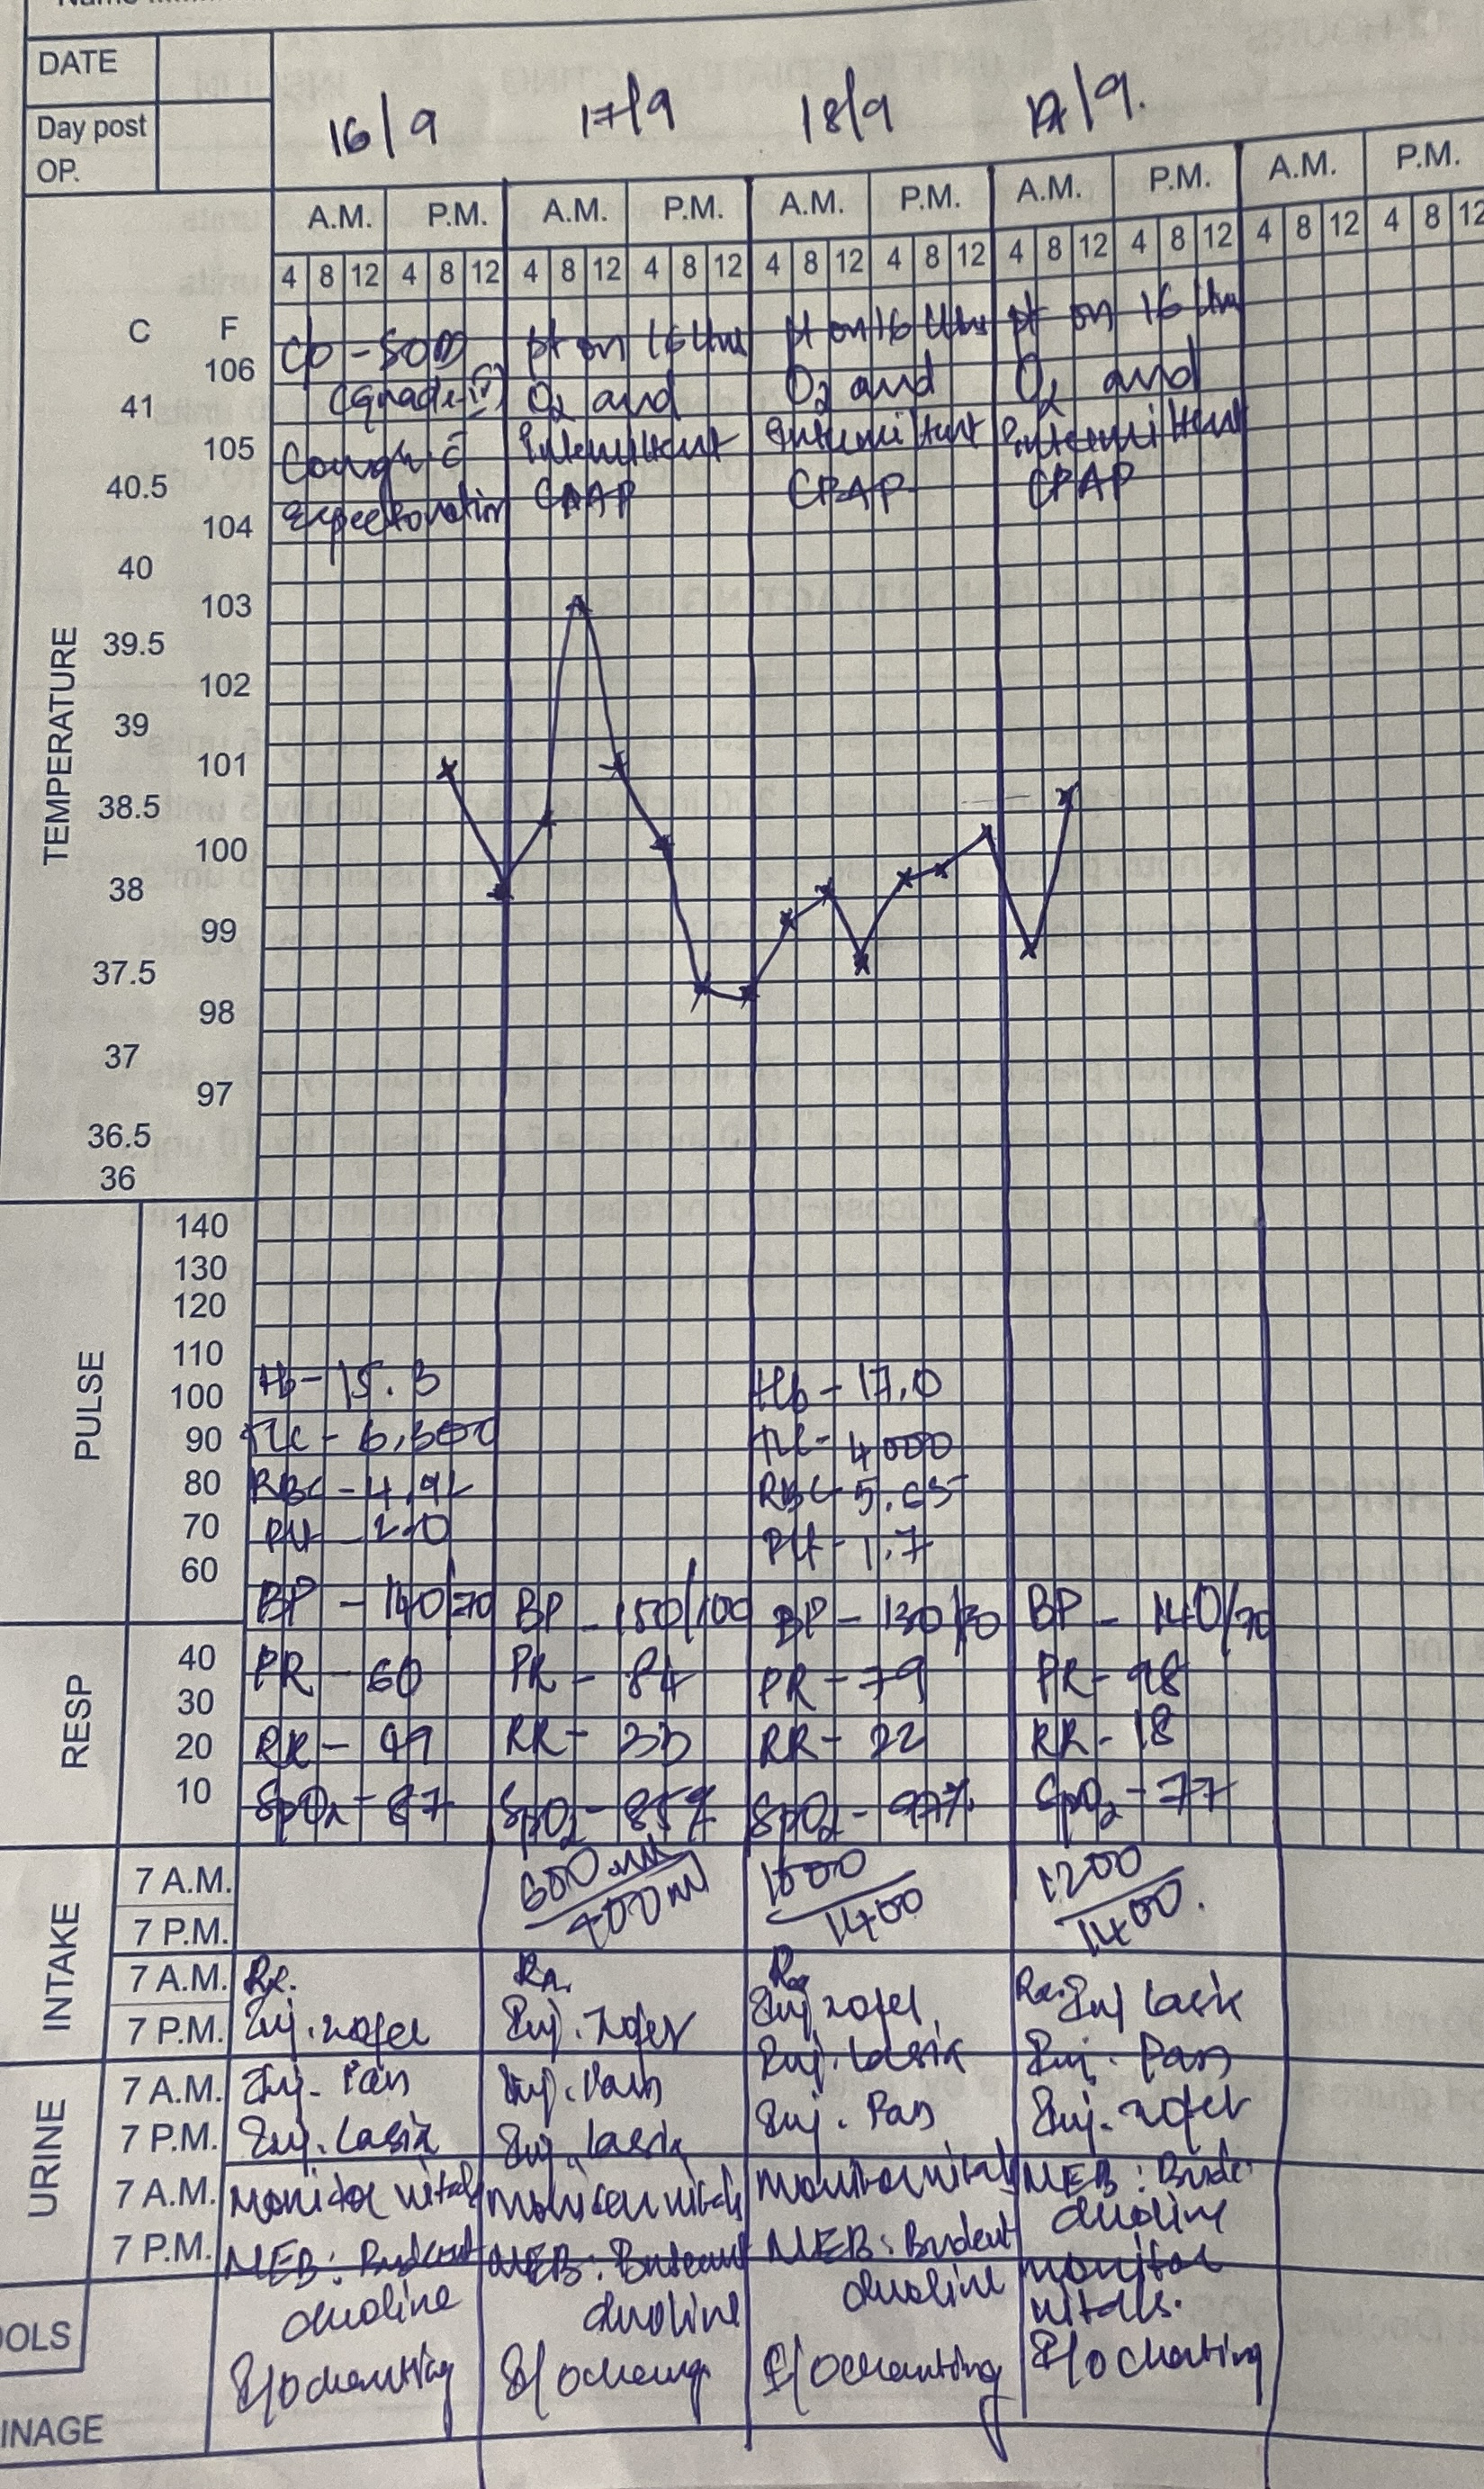 DATE
Day post
OP.
16/9 17/9 18/9 /9.
A.M. P.M. A.M. P.M. A.M. P.M. A.M. P.M. A.M. P.M.
4 8 12 4 8 12 4 8 12 4 8 12 4 8 12 4 8 12 4 8 12 4 8 12 4 8 12 4 8 12
C F
C/O - SOB pt on 16 pt on 16 pt on 16
(grade-IV) O2 and O2 and O2 and
Cough c̄ intermittent intermittent intermittent
expectoration CPAP CPAP CPAP
TEMPERATURE
106
41
105
40.5
104
40
103
39.5
102
39
101
38.5
100
38
99
37.5
98
37
97
36.5
36
PULSE
140
130
120
110
100
90
80
70
60
Hb - 15.3 Hb - 17.0
TLC - 6,300 TLC - 4000
RBC - 4.92 RBC - 5.65
Plt - 2.0 Plt - 1.7
BP - 140/70 BP - 150/100 BP - 130/80 BP - 140/70
RESP
40
30
20
10
PR - 60 PR - 84 PR - 79 PR - 98
RR - 49 RR - 33 RR - 22 RR - 18
SpO2 - 87 SpO2 - 85% SpO2 - 97% SpO2 - 77
INTAKE
7 A.M.
7 P.M.
7 A.M.
7 P.M.
600 ml 1000 1200
1400 1400.
Rx. Rx. Rx Rx. Inj Lasix
Inj. zofer Inj. Zofer Inj zofer Inj. Pan
Inj. Pan Inj. Pan Inj. Lasix Inj. zofer
Inj. Lasix Inj. Lasix Inj. Pan NEB: Bude.
Monitor vitals Monitor vitals Monitor vitals duoline
NEB: Budecort NEB: Budecort NEB: Budecort monitor
duoline duoline duoline vitals.
I/O charting I/O charting I/O charting I/O charting
URINE
7 A.M.
7 P.M.
7 A.M.
7 P.M.
OOLS
INAGE